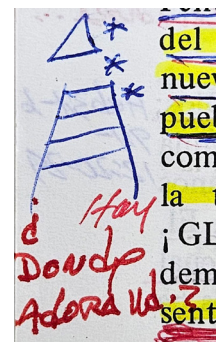 del
nuev
pueb
com
la t
¡ GL
dem
sent
Hay
¿
DONDe
ADORA Ud.?